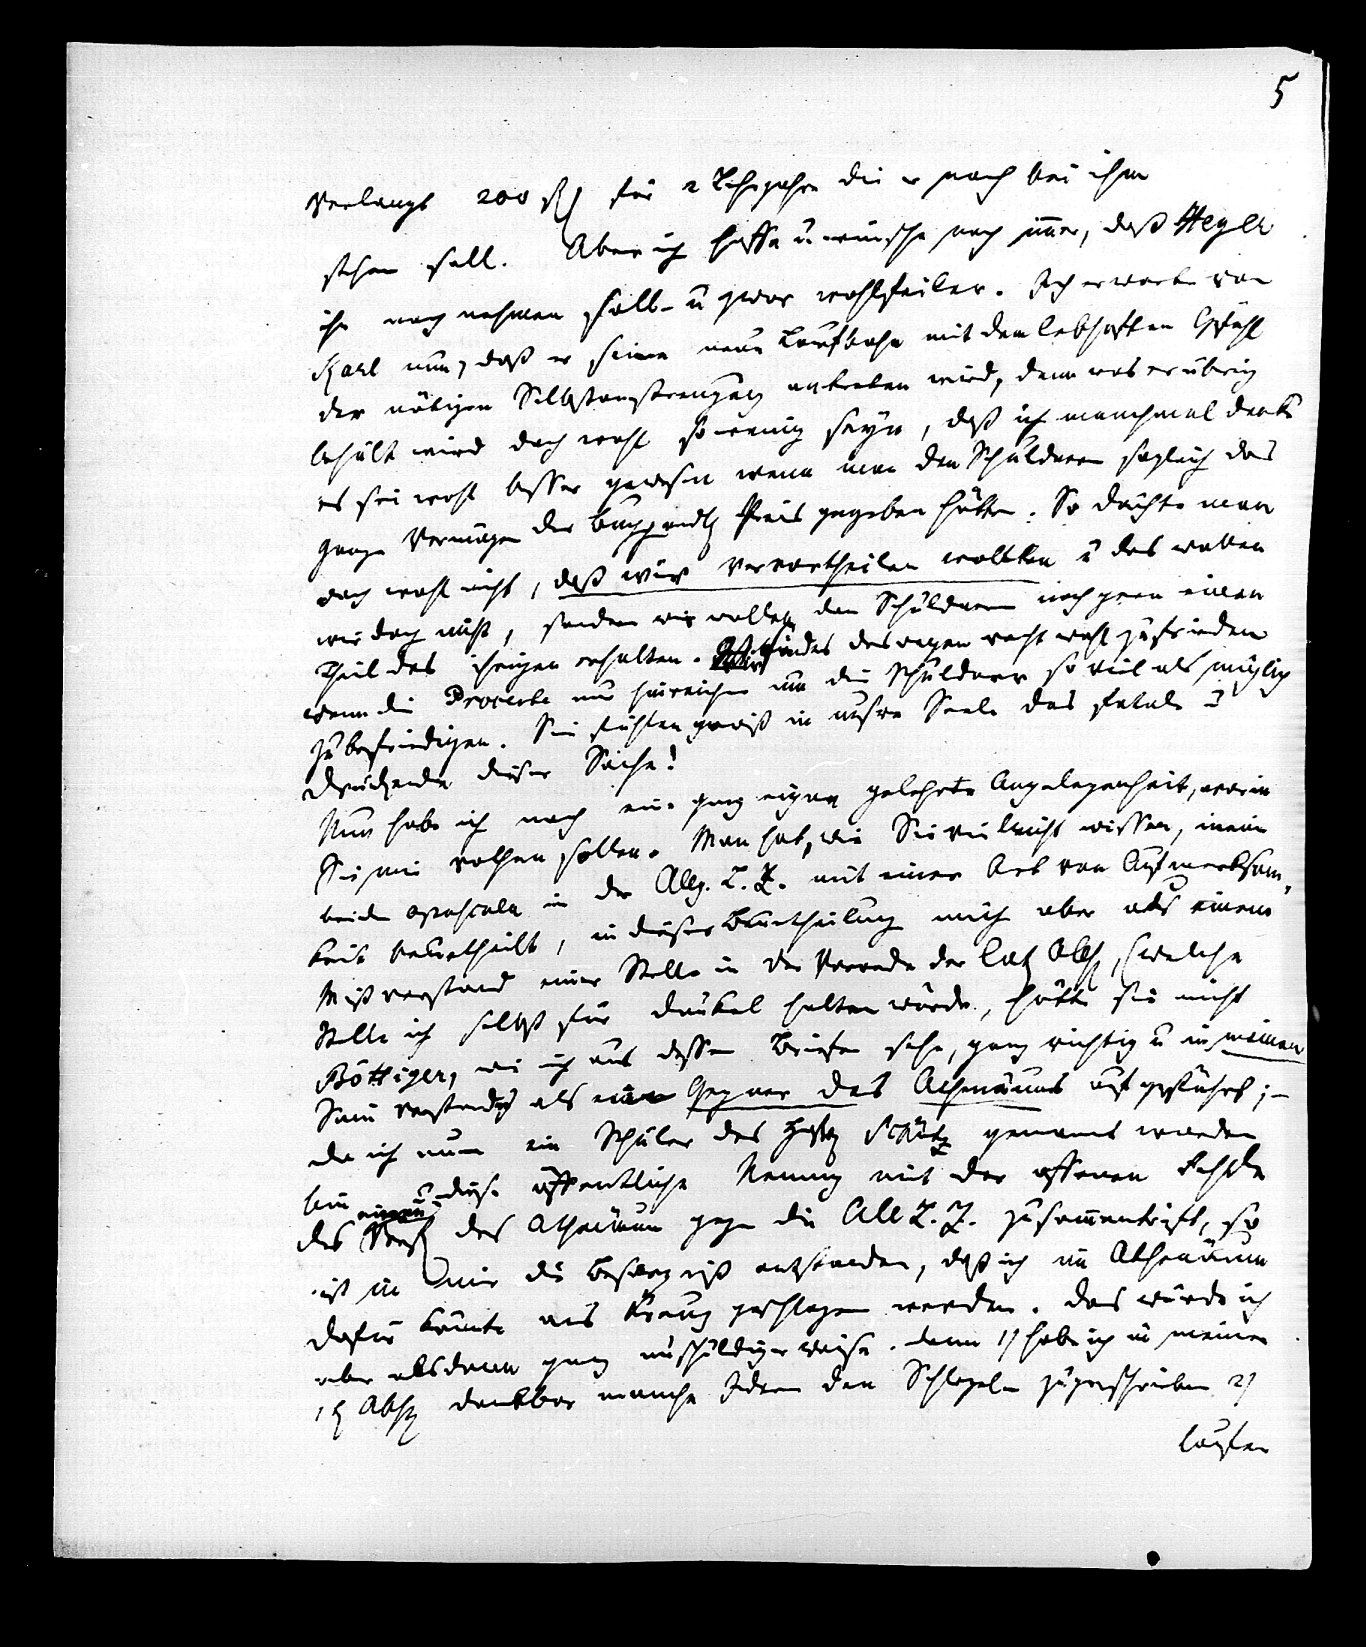 5
Verlangt 200 rh für 2 Lehrjahre die er noch bei ihm
stehen soll. Aber ich hoffe u wünsche noch immer, daß Heyer
ihn noch nehmen soll – u zwar wohlfeiler. Ich erwarte von
Karl nun, daß er seine neue Laufbahn mit dem lebhaften Gefühl
der nötigen Selbstanstrengung antreten wird, denn was er übrig
behält wird doch wohl so wenig seyn, daß ich manchmal denke
es sei wohl besser gewesen wenn man den Schuldnern sogleich das
ganze Vermögen der Buchhandlg Preis gegeben hätte. So dächte man
doch wohl nicht, daß wir vervortheilen wollten u das wollen
wir doch nicht, sondern wir wollen den Schuldnern noch gern einen
Theil des ihrigen erhalten. indes deswegen recht wohl zufrieden
wenn die Procente nur hinreichen um die Schuldner so viel als möglich
zu befriedigen. Sie fühlen gewiß in unsre Seele das fatale u
drückende dieser Sache!
Nun habe ich noch eine ganz eigne gelehrte Angelegenheit, worin
Sie mir rathen sollen. Man hat, wie Sie vielleicht wissen, meine
beiden opuscula in der Allg. L. Z. mit einer Art von Aufmerksam-
keit beurtheilt, in dieser Beurtheilung mich aber aus einem
Mißverstand einer Stelle in der Vorrede der lat Abh, (welche
Stelle ich selbst für dunkel halten würde, hätte sie nicht
Böttiger, wie ich aus dessen Briefen sehe, ganz richtig u in meinem
Sinn verstanden) als einen Gegner des Athenäums aufgeführt; –
da ich nun ein Schüler des Hofr Schütz genannt worden
bin u diese öffentliche Nennung mit der offenen Fehde
des Verf des Athenäum gegen die All L. Z. zusammentrift, so
ist in mir die Besorgniß entstanden, daß ich im Athenäum
dafür könnte ans Kreuz geschlagen werden. Das würde ich
aber alsdann ganz unschuldiger weise. denn 1) habe ich in meiner
Abh dankbar manche Ideen den Schlegeln zugeschrieben 2)
laufen